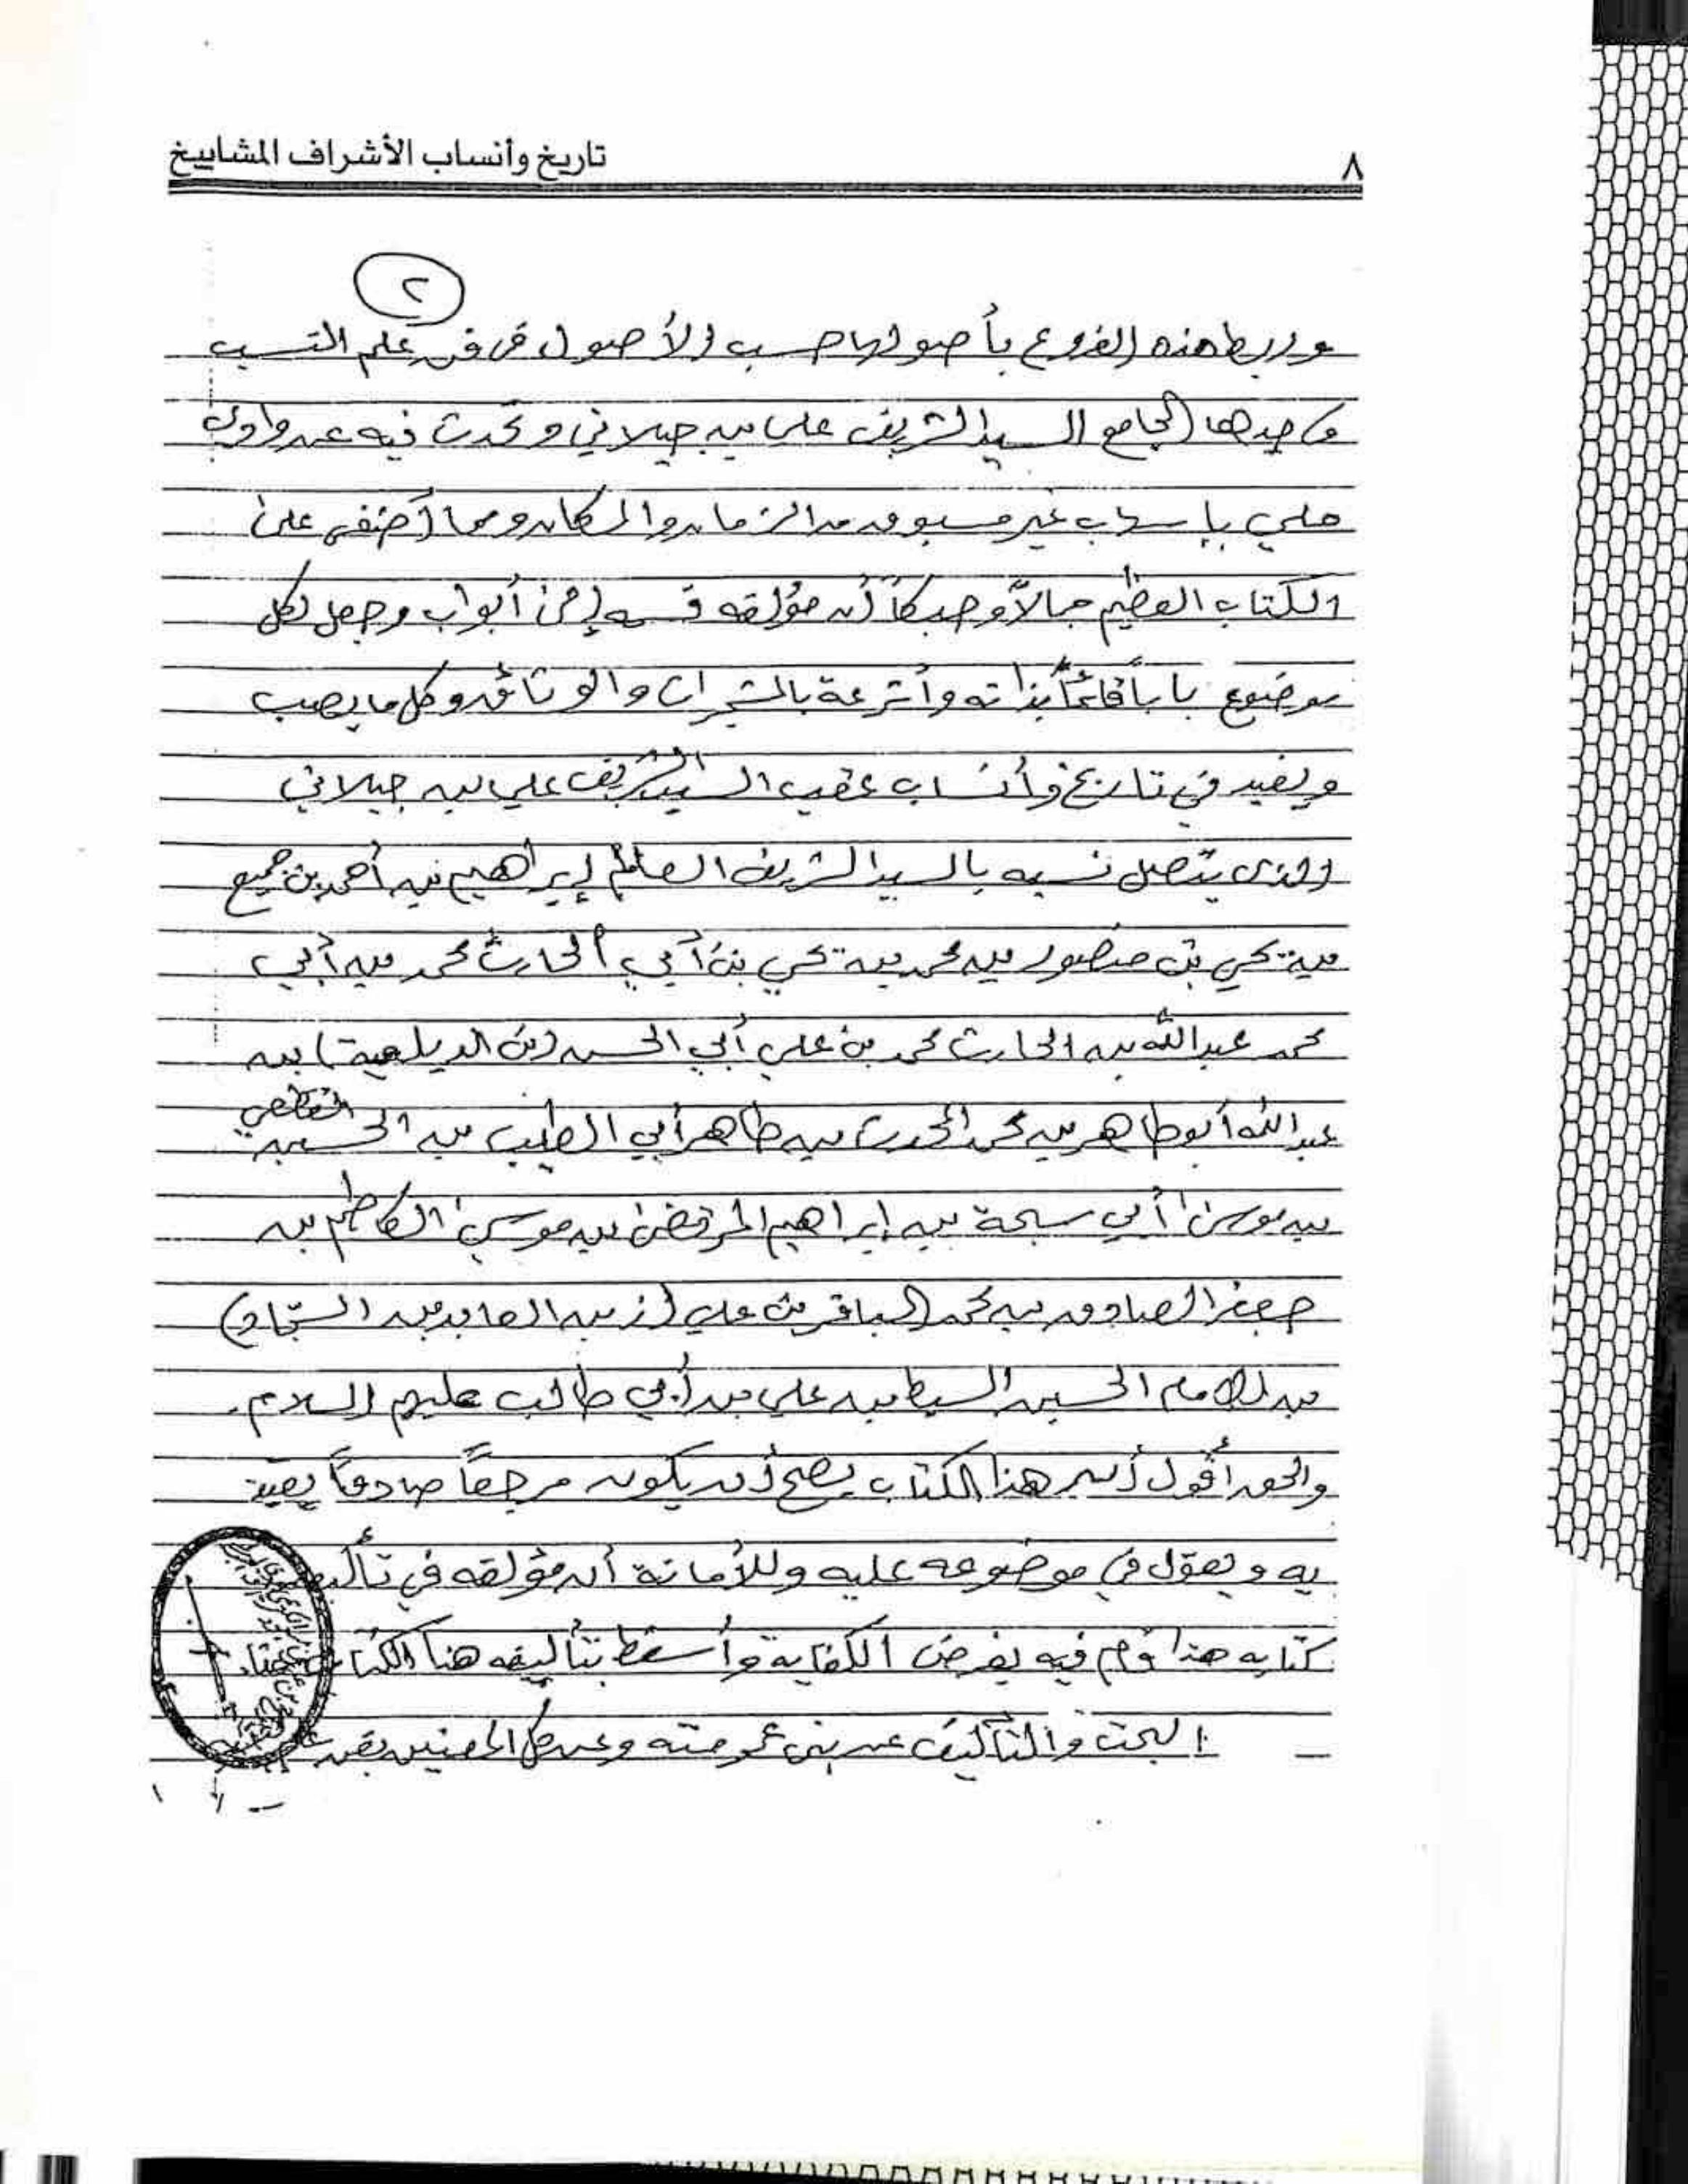 ٨
تاريخ وأنساب الأشراف المشاييخ
٢
وربط هذه الفروع بأصولها حسب الأصول في فن علم النسب
وجدها الجامع السيد الشريف علي بن جيلاني وتحدث فيه عن وادي
حلي بإسهاب غير مسبوق من الزمان والمكان ومما أضفى على
الكتاب العظيم جمالاً وحبكاً أن مؤلفه قسمه إلى أبواب وجعل لكل
موضوع باباً قائماً بذاته وأترعة بالمشجرات والوثائق وكل ما يصب
ويفيد في تاريخ وأنساب عقب السيد الشريف علي بن جيلاني
والذي يتصل نسبه بالسيد الشريف العالم إبراهيم بن أحمد بن جميع
بن يحي بن منصور بن محمد بن يحي بن أبي الحارث محمد بن أبي
محمد عبدالله بن الحارث محمد بن علي أبي الحسن (بن الديلمية) بن
عبدالله أبو طاهر بن محمد المحدث بن طاهر أبي الطيب بن الحسين القطعي
بن موسى أبي سبحة بن إبراهيم المرتضى بن موسى الكاظم بن
جعفر الصادق بن محمد الباقر بن علي (زين العابدين السجاد)
بن الإمام الحسين السبط بن علي بن أبي طالب عليهم السلام.
والحق أقول أن هذا الكتاب يصح أن يكون مرجعاً صادقاً يعتد
به ويعول في موضوعه عليه وللأمانة أن مؤلفه في تأليف
كتابه هذا قام فيه بفرض الكفاية وأسقط بتأليفه هذا الكتاب عناء
البحث والتأليف عن بني عمومته وعن كل المعنيين